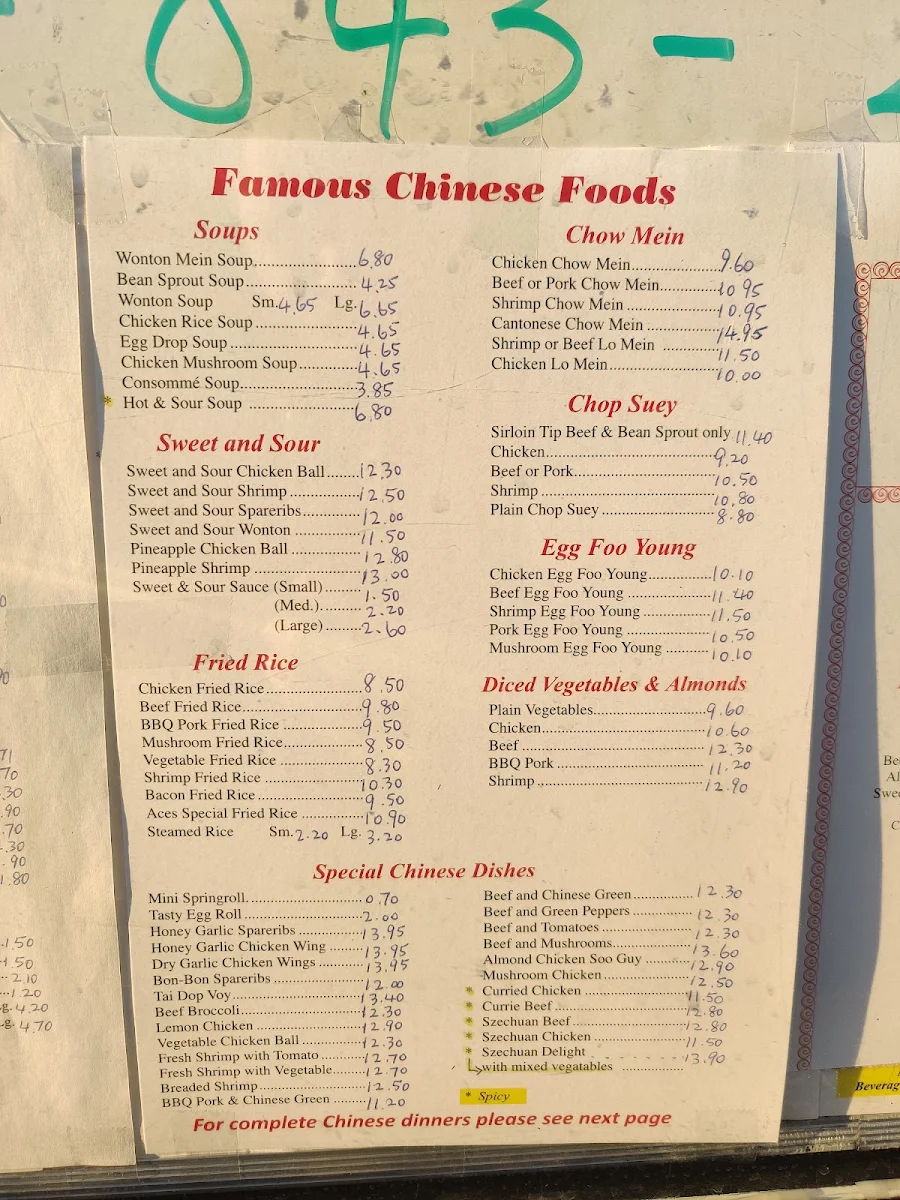 043-
Famous Chinese Foods
Soups
Wonton Mein Soup 6.80
Bean Sprout Soup 4.25
Wonton Soup Sm. 4.65 Lg. 6.65
Chicken Rice Soup 4.65
Egg Drop Soup 4.65
Chicken Mushroom Soup 4.65
Consommé Soup 3.85
* Hot & Sour Soup 6.80
Sweet and Sour
Sweet and Sour Chicken Ball 12.30
Sweet and Sour Shrimp 12.50
Sweet and Sour Spareribs 12.00
Sweet and Sour Wonton 11.50
Pineapple Chicken Ball 12.80
Pineapple Shrimp 13.00
Sweet & Sour Sauce (Small) 1.50
(Med.) 2.20
(Large) 2.60
Fried Rice
Chicken Fried Rice 8.50
Beef Fried Rice 9.80
BBQ Pork Fried Rice 9.50
Mushroom Fried Rice 8.50
Vegetable Fried Rice 8.30
Shrimp Fried Rice 10.30
Bacon Fried Rice 9.50
Aces Special Fried Rice 10.90
Steamed Rice Sm. 2.20 Lg. 3.20
Chow Mein
Chicken Chow Mein 9.60
Beef or Pork Chow Mein 10.95
Shrimp Chow Mein 10.95
Cantonese Chow Mein 14.95
Shrimp or Beef Lo Mein 11.50
Chicken Lo Mein 10.00
Chop Suey
Sirloin Tip Beef & Bean Sprout only 11.40
Chicken 9.20
Beef or Pork 10.50
Shrimp 10.80
Plain Chop Suey 8.80
Egg Foo Young
Chicken Egg Foo Young 10.10
Beef Egg Foo Young 11.40
Shrimp Egg Foo Young 11.50
Pork Egg Foo Young 10.50
Mushroom Egg Foo Young 10.10
Diced Vegetables & Almonds
Plain Vegetables 9.60
Chicken 10.60
Beef 12.30
BBQ Pork 11.20
Shrimp 12.90
Special Chinese Dishes
Mini Springroll 0.70
Tasty Egg Roll 2.00
Honey Garlic Spareribs 13.95
Honey Garlic Chicken Wing 13.95
Dry Garlic Chicken Wings 13.95
Bon-Bon Spareribs 12.00
Tai Dop Voy 13.40
Beef Broccoli 12.30
Lemon Chicken 12.90
Vegetable Chicken Ball 12.30
Fresh Shrimp with Tomato 12.70
Fresh Shrimp with Vegetable 12.70
Breaded Shrimp 12.50
BBQ Pork & Chinese Green 11.20
Beef and Chinese Green 12.30
Beef and Green Peppers 12.30
Beef and Tomatoes 12.30
Beef and Mushrooms 13.60
Almond Chicken Soo Guy 12.90
Mushroom Chicken 12.50
* Curried Chicken 11.50
* Currie Beef 12.80
* Szechuan Beef 12.80
* Szechuan Chicken 11.50
* Szechuan Delight 13.90
with mixed vegatables
* Spicy
For complete Chinese dinners please see next page
1.50
1.50
2.10
1.20
g. 4.20
g. 4.70
Beverag